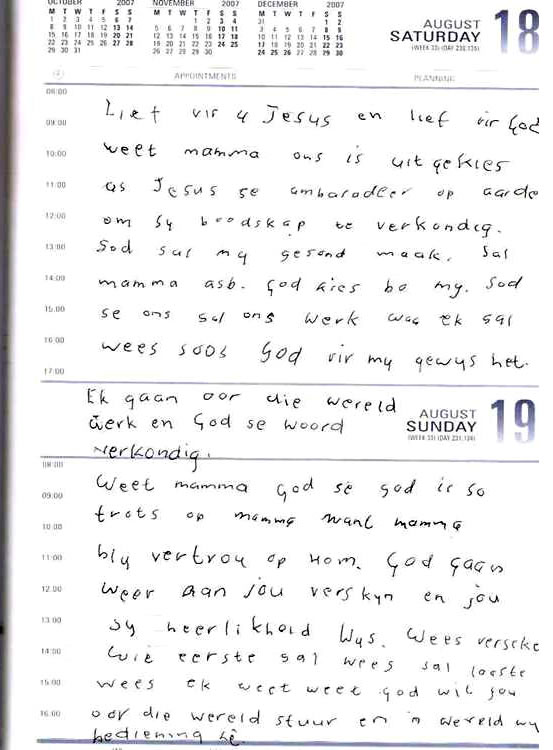 OCTOBER 2007 NOVEMBER 2007 DECEMBER 2007
M T W T F S S M T W T F S S M T W T F S S
1 2 3 4 5 6 7 1 2 3 4 31 1 2
8 9 10 11 12 13 14 5 6 7 8 9 10 11 3 4 5 6 7 8 9
15 16 17 18 19 20 21 12 13 14 15 16 17 18 10 11 12 13 14 15 16
22 23 24 25 26 27 28 19 20 21 22 23 24 25 17 18 19 20 21 22 23
29 30 31 26 27 28 29 30 24 25 26 27 28 29 30
AUGUST 18
SATURDAY
(WEEK 33) (DAY 230,135)
APPOINTMENTS PLANNING
08:00
09:00 Lief vir u Jesus en lief vir God
10:00 weet mamma ons is uitgekies
11:00 as Jesus se ambasadeer op aarde
12:00 om sy boodskap te verkondig.
13:00 God sal my gesond maak. Sal
14:00 mamma asb. God kies bo my. God
15:00 se ons sal ons werk was ek sal
16:00 wees soos God vir my gewys het.
17:00
Ek gaan oor die wereld
werk en God se woord
verkondig.
AUGUST 19
SUNDAY
(WEEK 33) (DAY 231,134)
08:00
09:00 Weet mamma God se god is so
10:00 trots op mamma want mamma
11:00 bly vertrou op Hom. God gaan
12:00 weer aan jou verskyn en jou
13:00 sy heerlikheid wys. Wees verseke
14:00 wie eerste sal wees sal laaste
15:00 wees ek weet weet God wil jou
16:00 oor die wereld stuur en 'n wereld wy
bediening hê.